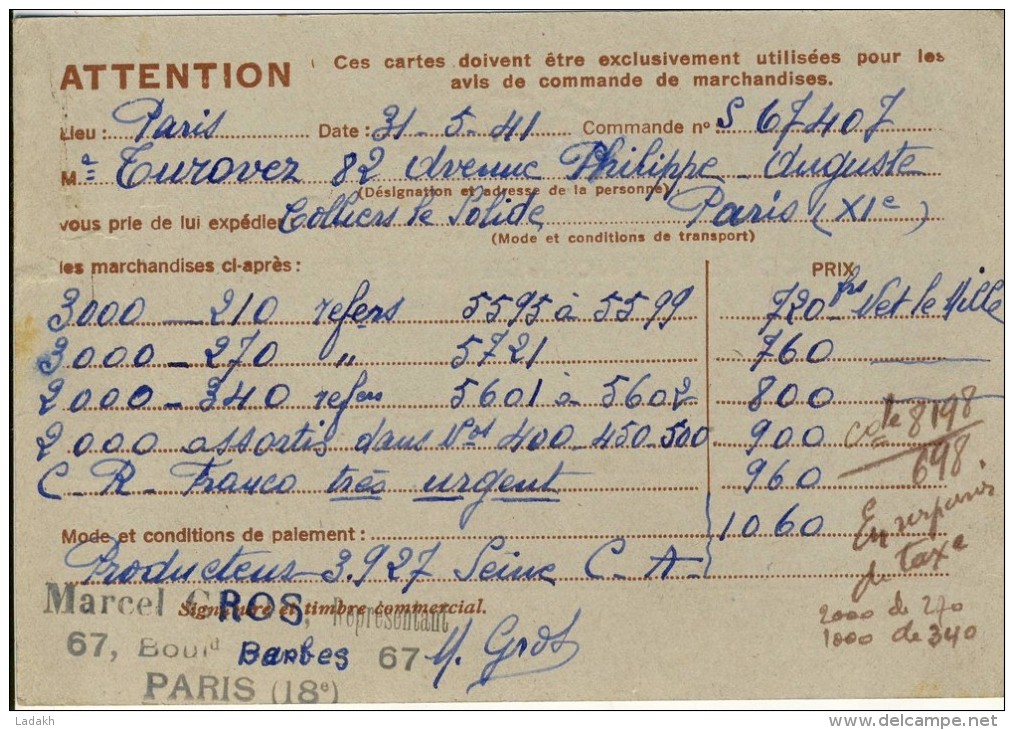 ATTENTION Ces cartes doivent être exclusivement utilisées pour les
avis de commande de marchandises.
Lieu : Paris Date : 31-5-41 Commande n° S 67407
Mr Turovez 82 Avenue Philippe-Auguste
(Désignation et adresse de la personne)
vous prie de lui expédier Colliers le Solide, Paris (XIe)
(Mode et conditions de transport)
les marchandises ci-après : PRIX
3000 - 210 refers 5595 à 5599 720 frs Net le Mille
3000 - 270 " 5721 760
2000 - 340 refers 5601 à 5602 800
2000 assortis dans Nos 400-450-500 900
cde 8198
698
C-R-Franco très urgent 960
Mode et conditions de paiement : 1060
En
de Taxe
Producteur 3.927 Seine C.A.
Signature et timbre commercial.
Marcel GROS, Représentant
67, Bould Barbes 67 M. Gros
PARIS (18e)
2000 de 270
1000 de 340
Ladakh
http://www.delcampe.net